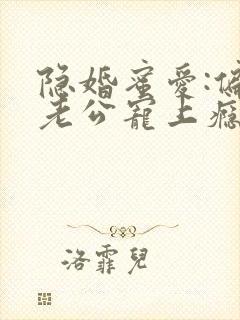 隐婚蜜爱:偏
老公寵上瘾
洛霏兒